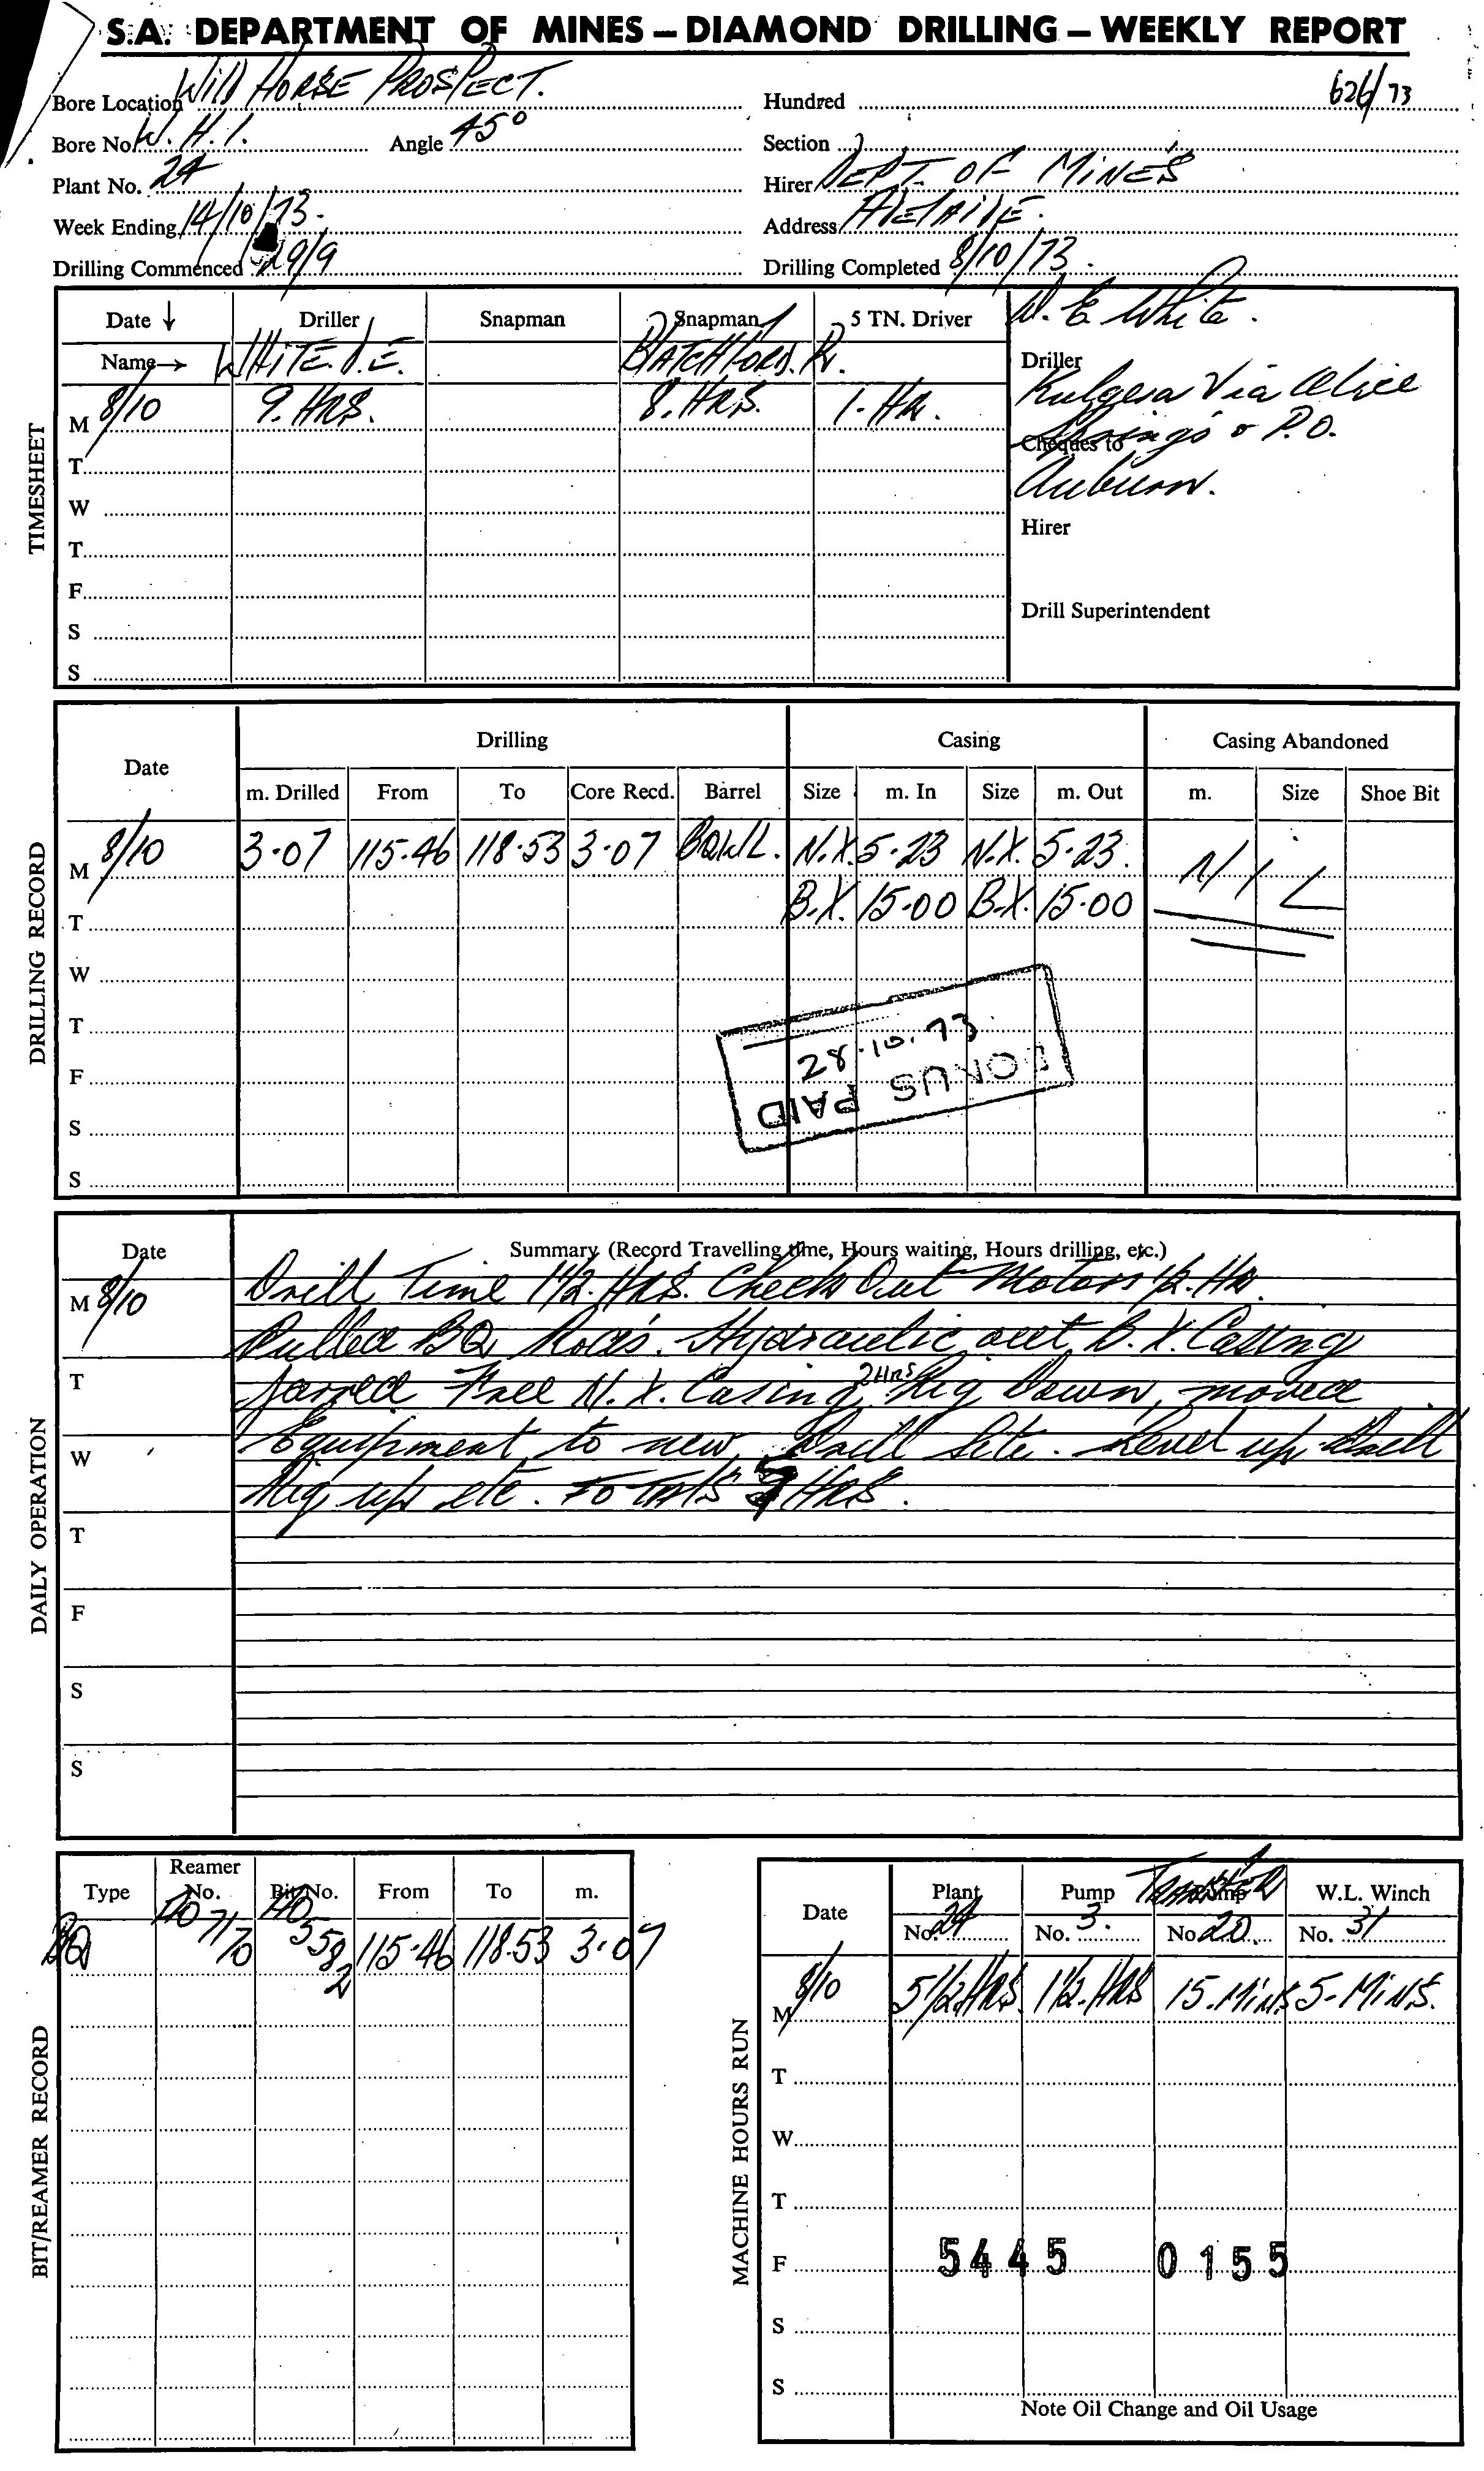 S.A. DEPARTMENT OF MINES – DIAMOND DRILLING – WEEKLY REPORT
626/73
Bore Location WILD HORSE PROSPECT. Hundred
Bore No. W.H.1. Angle 45° Section
Plant No. 24 Hirer DEPT. OF MINES
Week Ending 14/10/73. Address
Drilling Commenced 29/9 Drilling Completed 8/10/73.
TIMESHEET
Date ↓ Driller Snapman Snapman 5 TN. Driver
Name → WHITE. D.E. BLATCHFORD. R.
M 8/10 9. HRS. 8. HRS. 1. HR.
T
W
T
F
S
S
D. E. White.
Driller
Kulgera Via Alice
Springs o P.O.
Cheques to
Auburn.
Hirer
Drill Superintendent
DRILLING RECORD
Date Drilling Casing Casing Abandoned
m. Drilled From To Core Recd. Barrel Size m. In Size m. Out m. Size Shoe Bit
M 8/10 3.07 115.46 118.53 3.07 BQWL. N.X. 5.23 N.X. 5.23. NIL
T B.X. 15.00 B.X. 15.00
W
T
F
S
S
28.10.73
BONUS PAID
DAILY OPERATION
Date Summary (Record Travelling time, Hours waiting, Hours drilling, etc.)
M 8/10 Drill Time 1 1/2. HRS. Check Out Motors 1/2. HR.
Pulled BQ Rods. Hydraulic out B.X. Casing
T Jarred Free N.X. Casing 2 HRS Rig Down, moved
W Equipment to new Drill Site. Level up Drill
Rig up etc. TOTALS HRS.
T
F
S
S
BIT/REAMER RECORD
Type Reamer No. Bit No. From To m.
BQ 115.46 118.53 3.07
MACHINE HOURS RUN
Date Plant Pump TRANSFER Pump W.L. Winch
No. 24 No. 3. No. 20. No. 31
M 8/10 5 1/2 HRS. 1 1/2. HRS 15. MINS 5. MINS.
T
W
T
F 5445 0155
S
S
Note Oil Change and Oil Usage